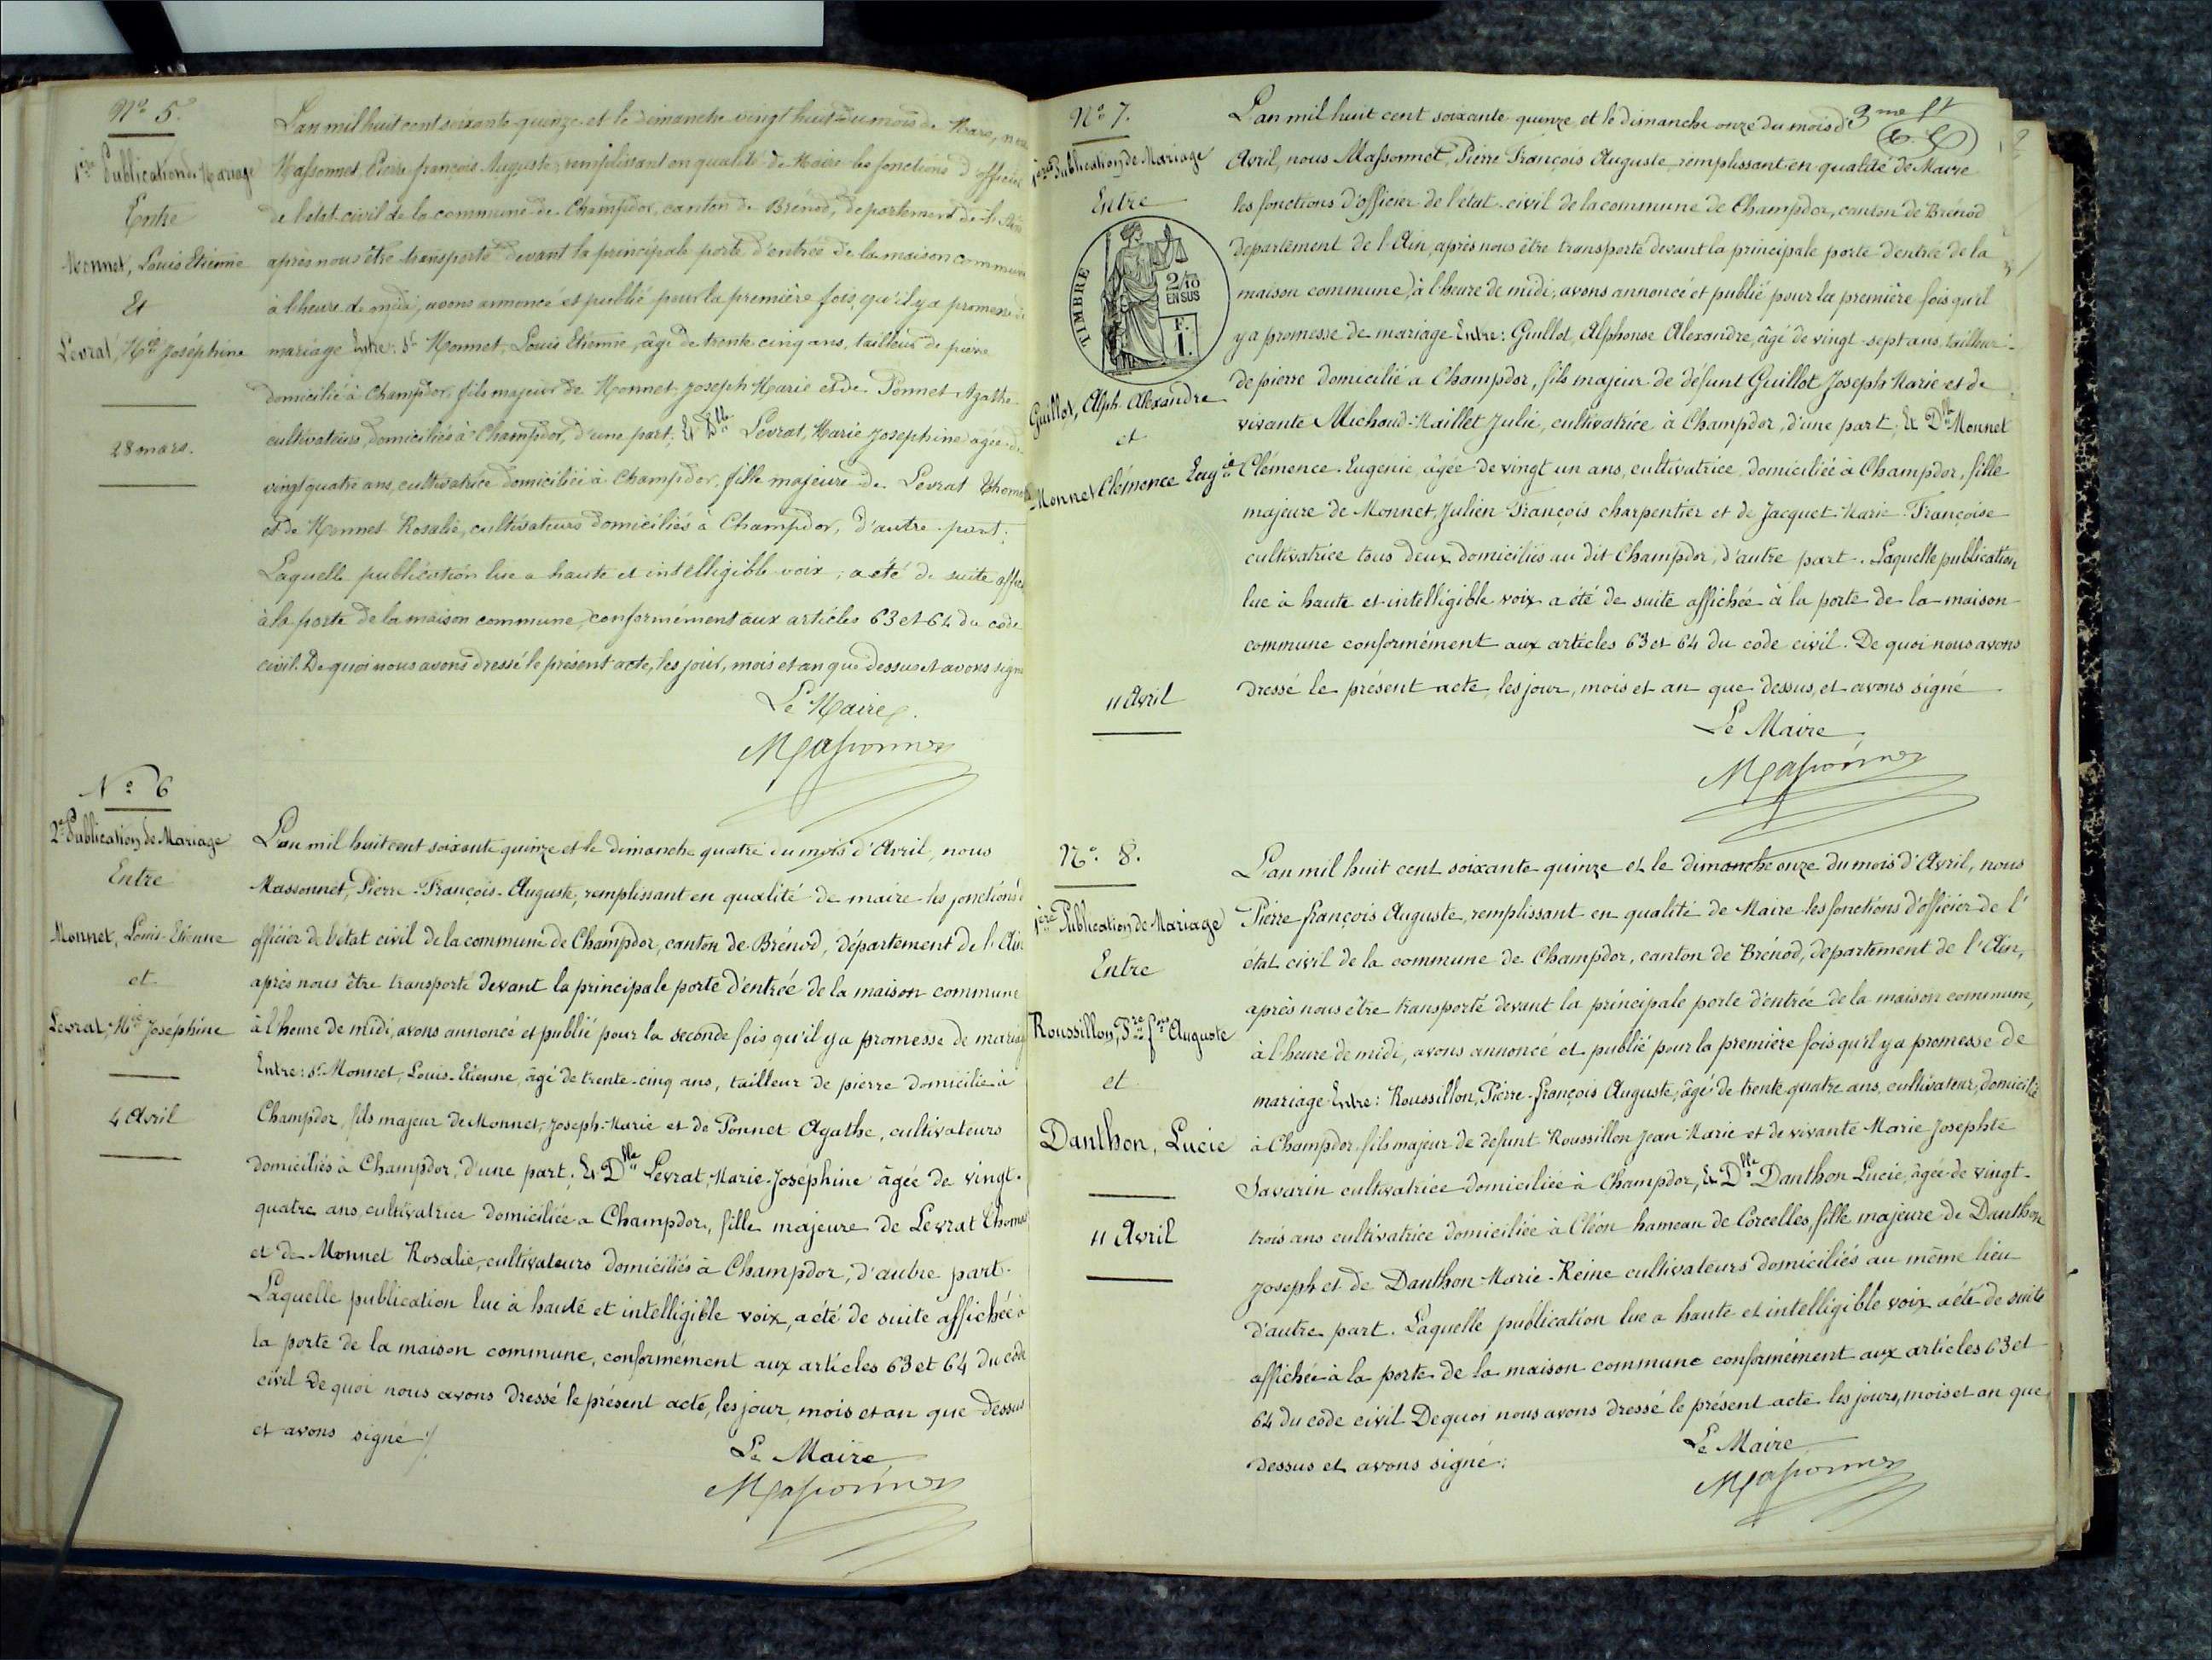 N° 5.
1ère Publication de Mariage
Entre
Monnet, Louis Etienne
Et
Levrat, Mie Joséphine
28 mars.
L'an mil huit cent soixante quinze et le dimanche vingt huit du mois de Mars,
Massonnet, Pierre françois Auguste, remplissant en qualité de Maire les fonctions d'officier
de l'état civil de la commune de Champdor, canton de Brénod, département de l'Ain
après nous être transporté devant la principale porte d'entrée de la maison commune
à l'heure de midi, avons annoncé et publié pour la première fois, qu'il y a promesse de
mariage Entre: Sr Monnet, Louis Etienne, âgé de trente cinq ans, tailleur de pierre
domicilié à Champdor, fils majeur de Monnet Joseph Marie et de Ponnet Agathe
cultivateurs, domiciliés à Champdor, d'une part; Et Dlle Levrat, Marie Josephine agée de
vingt quatre ans, cultivatrice domiciliée à Champdor, fille majeure de Levrat Thomas
et de Monnet Rosalie, cultivateurs domiciliés à Champdor, d'autre part;
Laquelle publication lue a haute et intelligible voix; a été de suite
à la porte de la maison commune, conformément aux articles 63 et 64 du code
civil. De quoi nous avons dressé le présent acte, les jour, mois et an que dessus et avons signé
Le Maire
Massonnet
N° 6
2e Publication de Mariage
Entre
Monnet, Louis-Etienne
et
Levrat, Mie Joséphine
4 Avril
L'an mil huit cent soixante quinze et le dimanche quatre du mois d'Avril, nous
Massonnet, Pierre-François-Auguste, remplissant en qualité de maire les fonctions d'
officier de l'état civil de la commune de Champdor, canton de Brénod, département de l'Ain
après nous être transporté devant la principale porte d'entrée de la maison commune
à l'heure de midi, avons annoncé et publié pour la seconde fois qu'il y a promesse de mariage
Entre: Sr Monnet, Louis-Etienne, âgé de trente-cinq ans, tailleur de pierre domicilié à
Champdor, fils majeur de Monnet, Joseph-Marie et de Ponnet Agathe, cultivateurs
domiciliés à Champdor, d'une part; Et Dlle Levrat, Marie-Joséphine âgée de vingt-
quatre ans, cultivatrice domiciliée a Champdor, fille majeure de Levrat Thomas
et de Monnet Rosalie, cultivateurs domiciliés à Champdor, d'autre part.
Laquelle publication lue à haute et intelligible voix, a été de suite affichée à
la porte de la maison commune, conformément aux articles 63 et 64 du code
civil De quoi nous avons dressé le présent acte, les jour, mois et an que dessus
et avons signé /.
Le Maire
Massonnet
N° 7.
1ère Publication de Mariage
Entre
TIMBRE
2/10
EN SUS
F.
1.
Guillot, Alph. Alexandre
et
Monnet Clémence Eugie
11 Avril
3me ft
L'an mil huit cent soixante quinze et le dimanche onze du mois d'
Avril, nous Massonnet, Pierre François Auguste, remplissant en qualité de Maire
les fonctions d'officier de l'état-civil de la commune de Champdor, canton de Brénod
département de l'Ain, après nous être transporté devant la principale porte d'entrée de la
maison commune, à l'heure de midi, avons annoncé et publié pour la première fois qu'il
y a promesse de mariage Entre: Guillot, Alphonse Alexandre, âgé de vingt-sept ans, tailleur
de pierre domicilié a Champdor, fils majeur de défunt Guillot Joseph Marie et de
vivante Michaud-Maillet Julie, cultivatrice à Champdor, d'une part; Et Dlle Monnet
Clémence-Eugenie, âgée de vingt un ans, cultivatrice, domiciliée à Champdor, fille
majeure de Monnet, Julien-François charpentier et de Jacquet Marie-Françoise
cultivatrice tous deux domiciliés au dit Champdor, d'autre part. Laquelle publication
lue à haute et intelligible voix a été de suite affichée à la porte de la maison
commune conformément aux articles 63 et 64 du code civil. De quoi nous avons
dressé le présent acte, les jour, mois et an que dessus, et avons signé
Le Maire
Massonnet
N° 8.
1ère Publication de Mariage
Entre
Roussillon, Pre fois Auguste
et
Danthon, Lucie
11 Avril
L'an mil huit cent soixante quinze et le dimanche onze du mois d'Avril, nous
Pierre françois Auguste, remplissant en qualité de Maire les fonctions d'officier de l'
état civil de la commune de Champdor, canton de Brénod, département de l'Ain,
après nous être transporté devant la principale porte d'entrée de la maison commune,
à l'heure de midi, avons annoncé et publié pour la première fois qu'il y a promesse de
mariage Entre: Roussillon, Pierre-françois Auguste, âgé de trente quatre ans, cultivateur, domicilié
à Champdor, fils majeur de défunt Roussillon Jean Marie et de vivante Marie Josephte
Savarin cultivatrice domiciliée à Champdor, Et Dlle Danthon Lucie, âgée de vingt-
trois ans cultivatrice domiciliée à Cléon hameau de Corcelles, fille majeure de Danthon
Joseph et de Danthon Marie-Reine cultivateurs domiciliés au même lieu
d'autre part. Laquelle publication lue a haute et intelligible voix a été de suite
affichée à la porte de la maison commune conformément aux articles 63 et
64 du code civil De quoi nous avons dressé le présent acte les jours, mois et an que
dessus et avons signé:
Le Maire
Massonnet